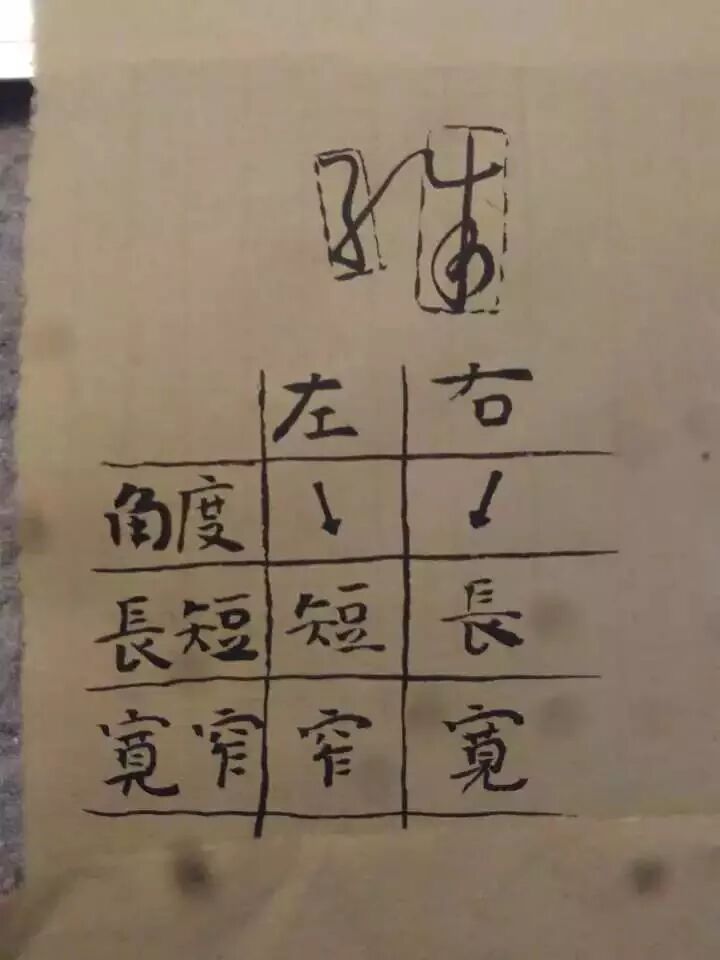 左 右
角度 ↘ ↙
長短 短 長
寬窄 窄 寬